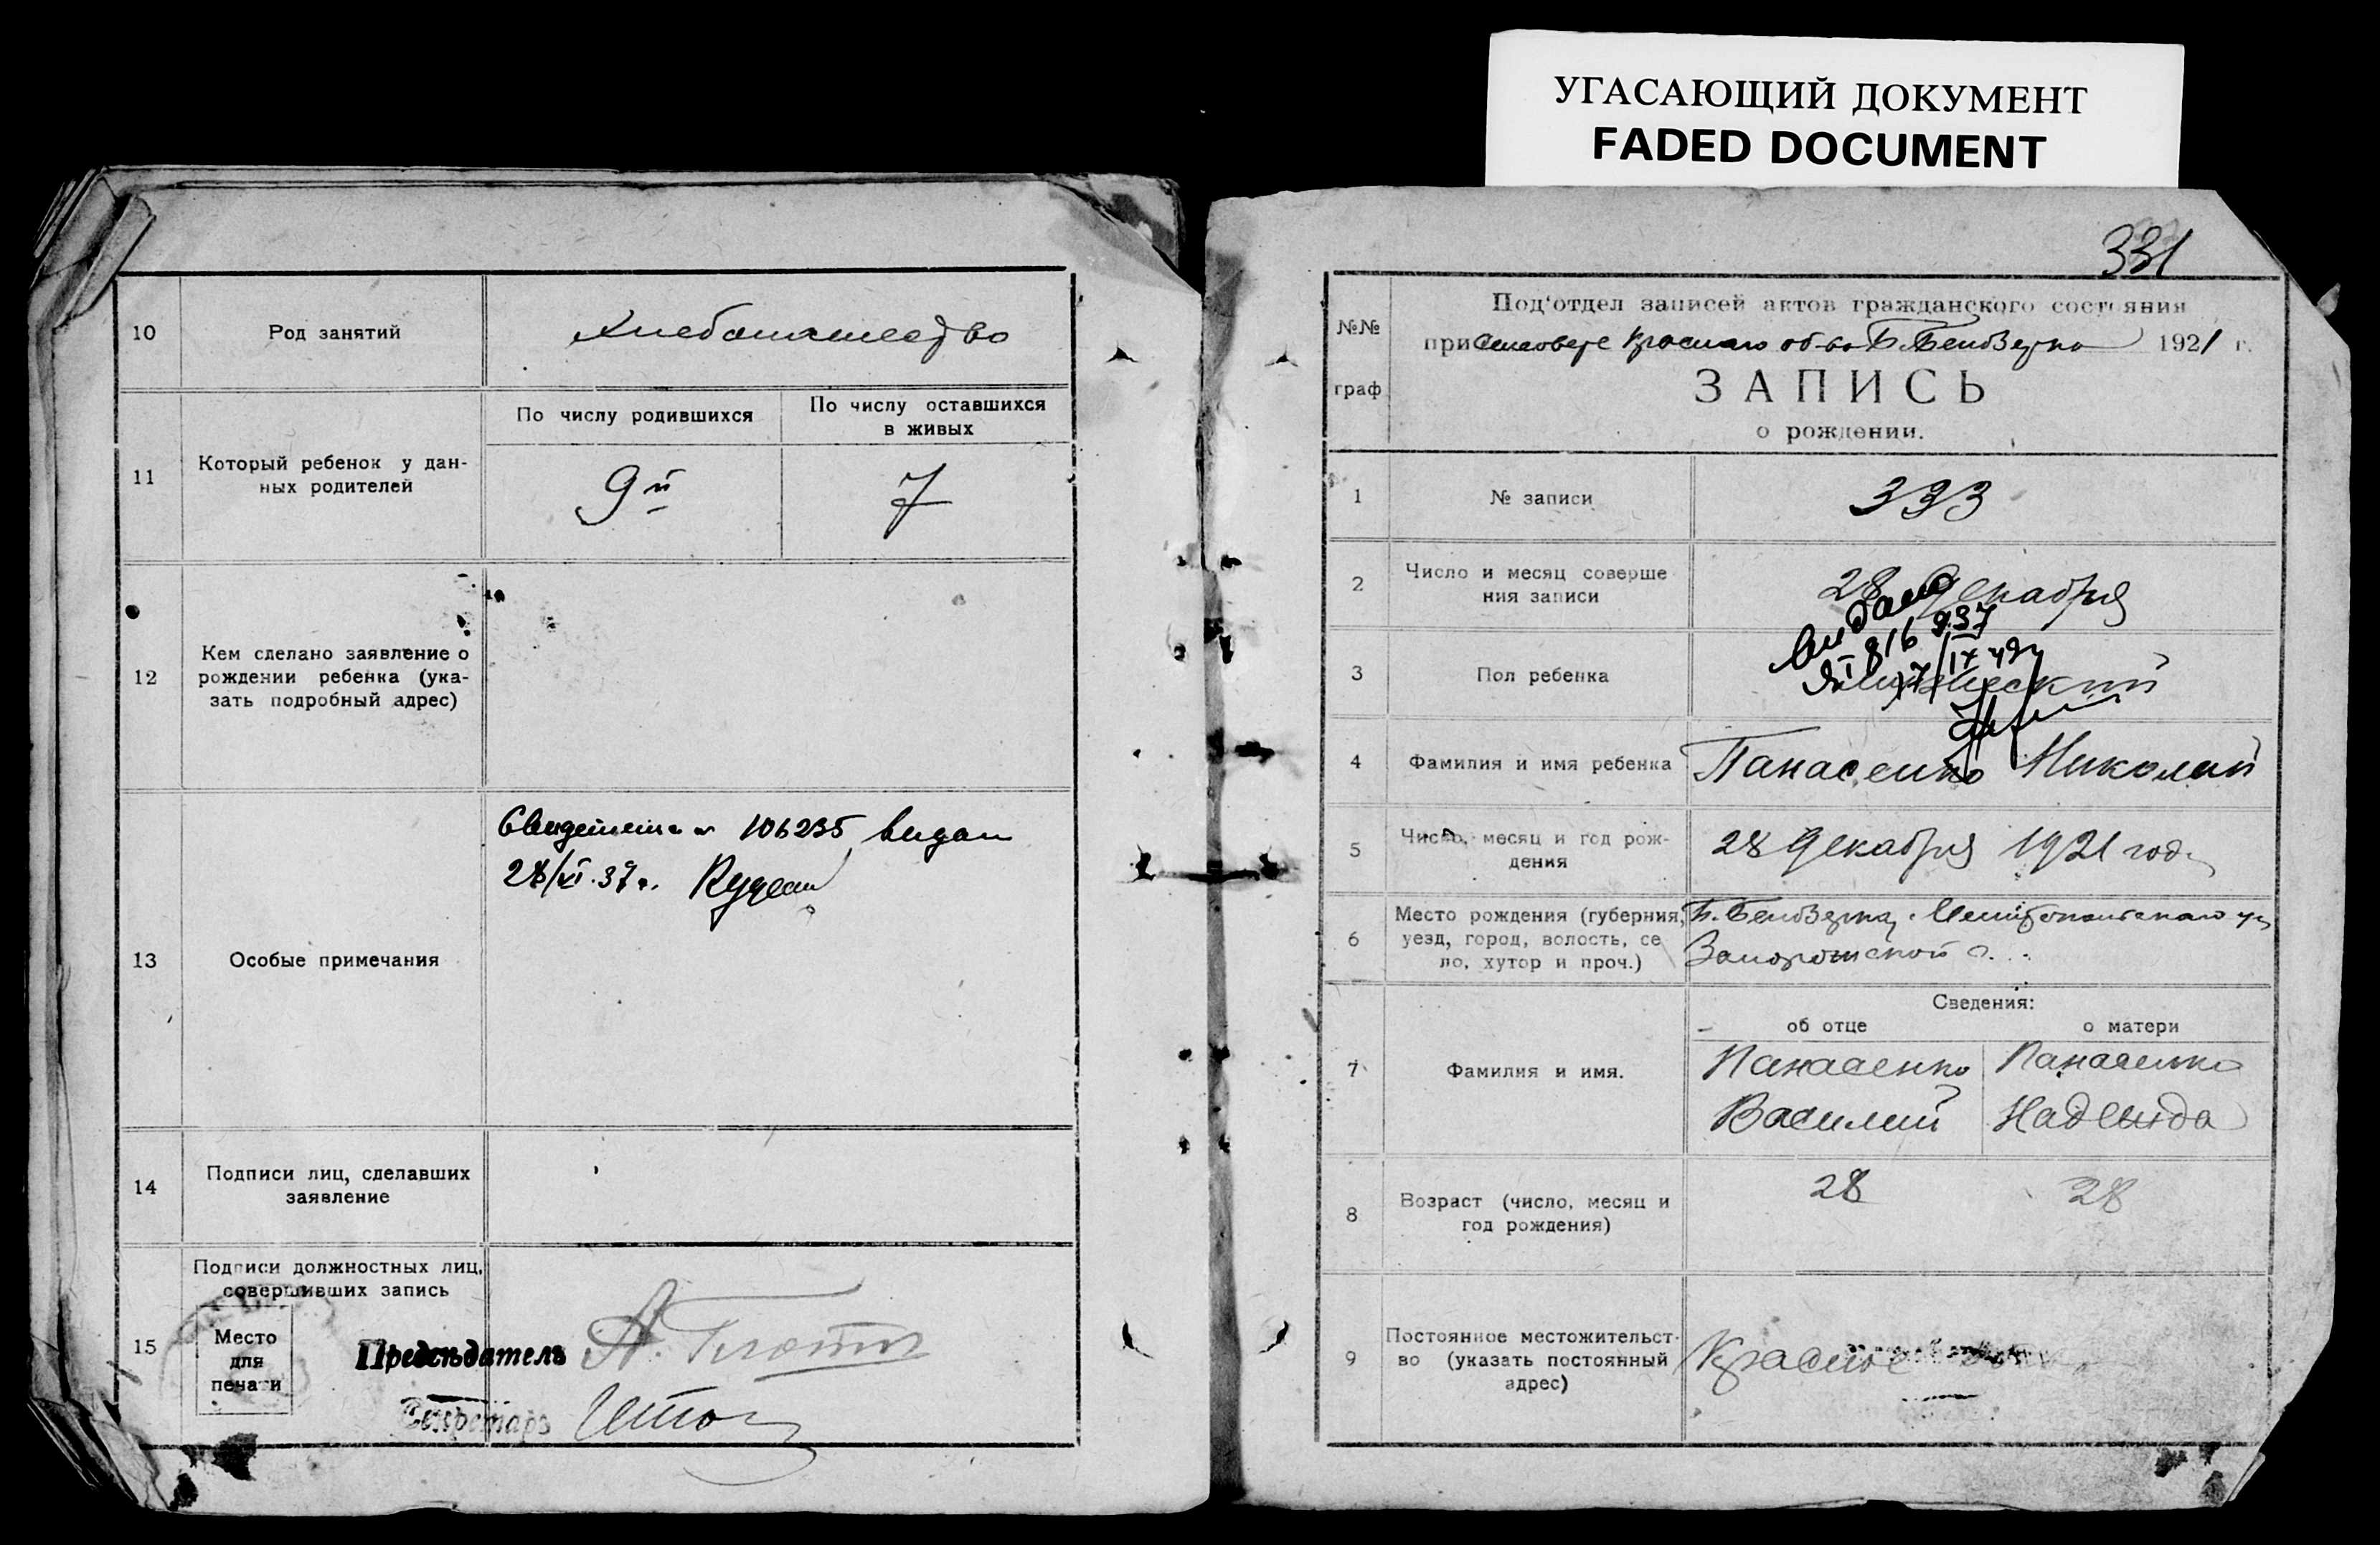 УГАСАЮЩИЙ ДОКУМЕНТ
FADED DOCUMENT
10
Род занятий
Хлебопашество
11
Который ребенок у дан-
ных родителей
По числу родившихся
9й
По числу оставшихся
в живых
7
12
Кем сделано заявление о
рождении ребенка (ука-
зать подробный адрес)
13
Особые примечания
106235 видан
28/VI.37г.
14
Подписи лиц, сделавших
заявление
15
Подписи должностных лиц,
совершивших запись
Место
для
печати
Предсѣдатель
Секретарь
331
№№
граф
Под'отдел записей актов гражданского состояния
при Б. Белозерка 1921 г.
ЗАПИСЬ
о рождении.
1
№ записи
333
2
Число и месяц соверше
ния записи
28 Декабря
3
Пол ребенка
Мужеский
4
Фамилия и имя ребенка
Панасенко Николай
5
Число, месяц и год рож-
дения
28 Декабря 1921 года
6
Место рождения (губерния,
уезд, город, волость, се
ло, хутор и проч.)
Б. Белозерка, Мелитопольскаго у
Запорожской г.
Сведения:
об отце
о матери
7
Фамилия и имя.
Панасенко
Василий
Панасенко
Надежда
8
Возраст (число, месяц и
год рождения)
28
28
9
Постоянное местожительст-
во (указать постоянный
адрес)
Красное